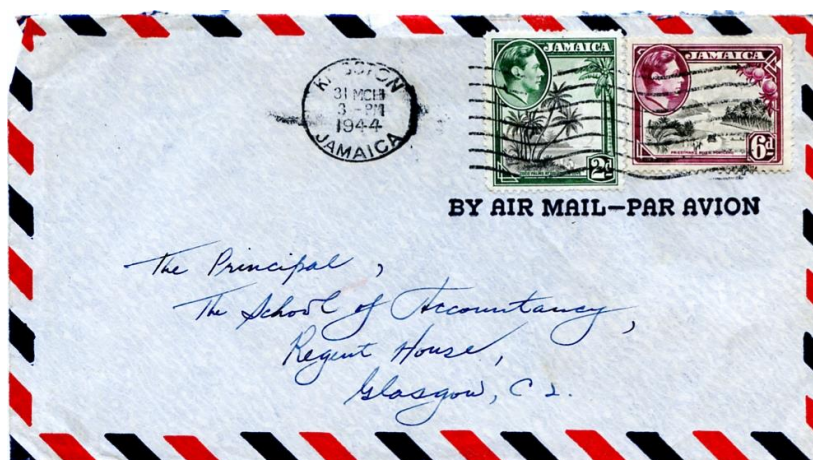 KINGSTON
31 MCH
3 - PM
1944
JAMAICA
JAMAICA
2d
JAMAICA
6d
BY AIR MAIL—PAR AVION
The Principal,
The School of Accountancy,
Regent House,
Glasgow, C 2.